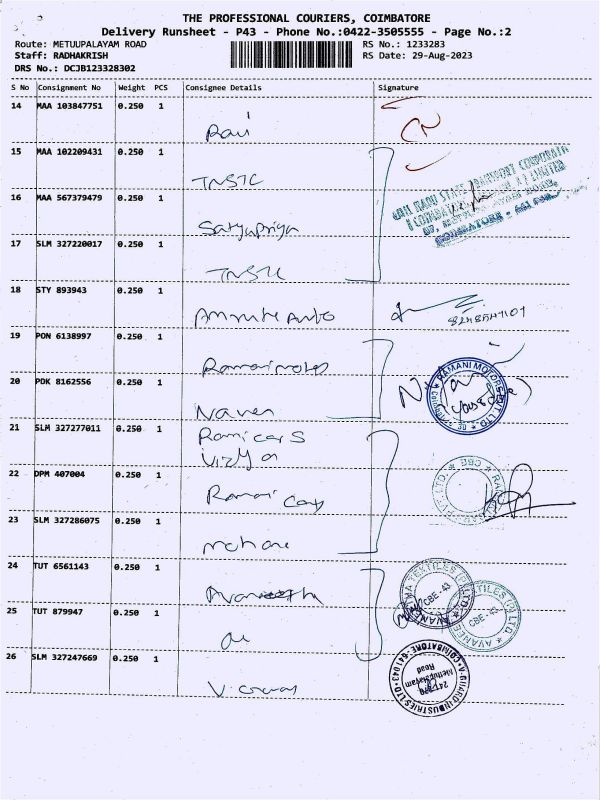 THE PROFESSIONAL COURIERS, COIMBATORE
Delivery Runsheet - P43 - Phone No.:0422-3505555 - Page No.:2
Route: METUUPALAYAM ROAD RS No.: 1233283
Staff: RADHAKRISH RS Date: 29-Aug-2023
DRS No.: DCJB123328302
S No Consignment No Weight PCS Consignee Details Signature
14 MAA 103847751 0.250 1
Ravi
15 MAA 102209431 0.250 1
TNSTC
16 MAA 567379479 0.250 1
Satyapriya
17 SLM 327220017 0.250 1
TNSTC
18 STY 893943 0.250 1
Auto
19 PON 6138997 0.250 1
Ramani motors
20 PDK 8162556 0.250 1
Naven
RAMANI MOTORS PVT. LTD.
21 SLM 327277011 0.250 1
Ramicars
22 DPM 407004 0.250 1
Ramani Cars
23 SLM 327286075 0.250 1
24 TUT 6561143 0.250 1
TEXTILES (P) LTD.
CBE-43
25 TUT 879947 0.250 1
CBE-43
26 SLM 327247669 0.250 1
V-GUARD INDUSTRIES LTD
COIMBATORE-641043
Road